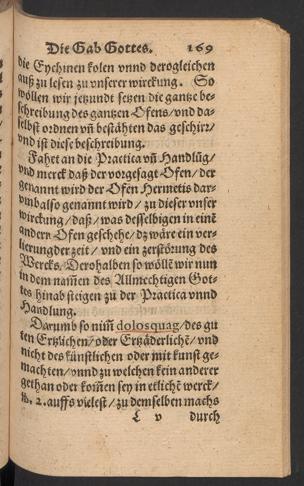 Die Gab Gottes. 169
die Eychinen kolen vnnd derogleichen
auß zu lesen zu vnserer wirckung. So
wöllen wir jetzundt setzen die gantze be-
schreibung des gantzen Ofens/vnd da-
selbst ordnen vñ bestähten das geschirr/
vnd ist diese beschreibung.
Fahet an die Practica vñ Handlũg/
vnd merck daß der vorgesagt Ofen/ der
genannt wird der Ofen Hermetis dar-
vmb also genannt wird/ zu dieser vnser
wirckung/ daß/ was desselbigen in einẽ
andern Ofen geschehe/ dz wäre ein ver-
lierung der zeit/ vnd ein zerstörung des
Wercks. Derohalben so wöllẽ wir nun
in dem nam̃en des Allmechtigen Got-
tes hinab steigen zu der Practica vnnd
Handlung.
Darumb so nim̃ dolosquag/des gu
ten Ertzlichen/oder Ertzäderlichẽ/ vnd
nicht des künstlichen oder mit kunst ge-
machten/vnnd zu welchen kein anderer
gethan oder kom̃en sey in etlichẽ werck/
℔. 2. auffs vielest/ zu demselben machs
L v durch